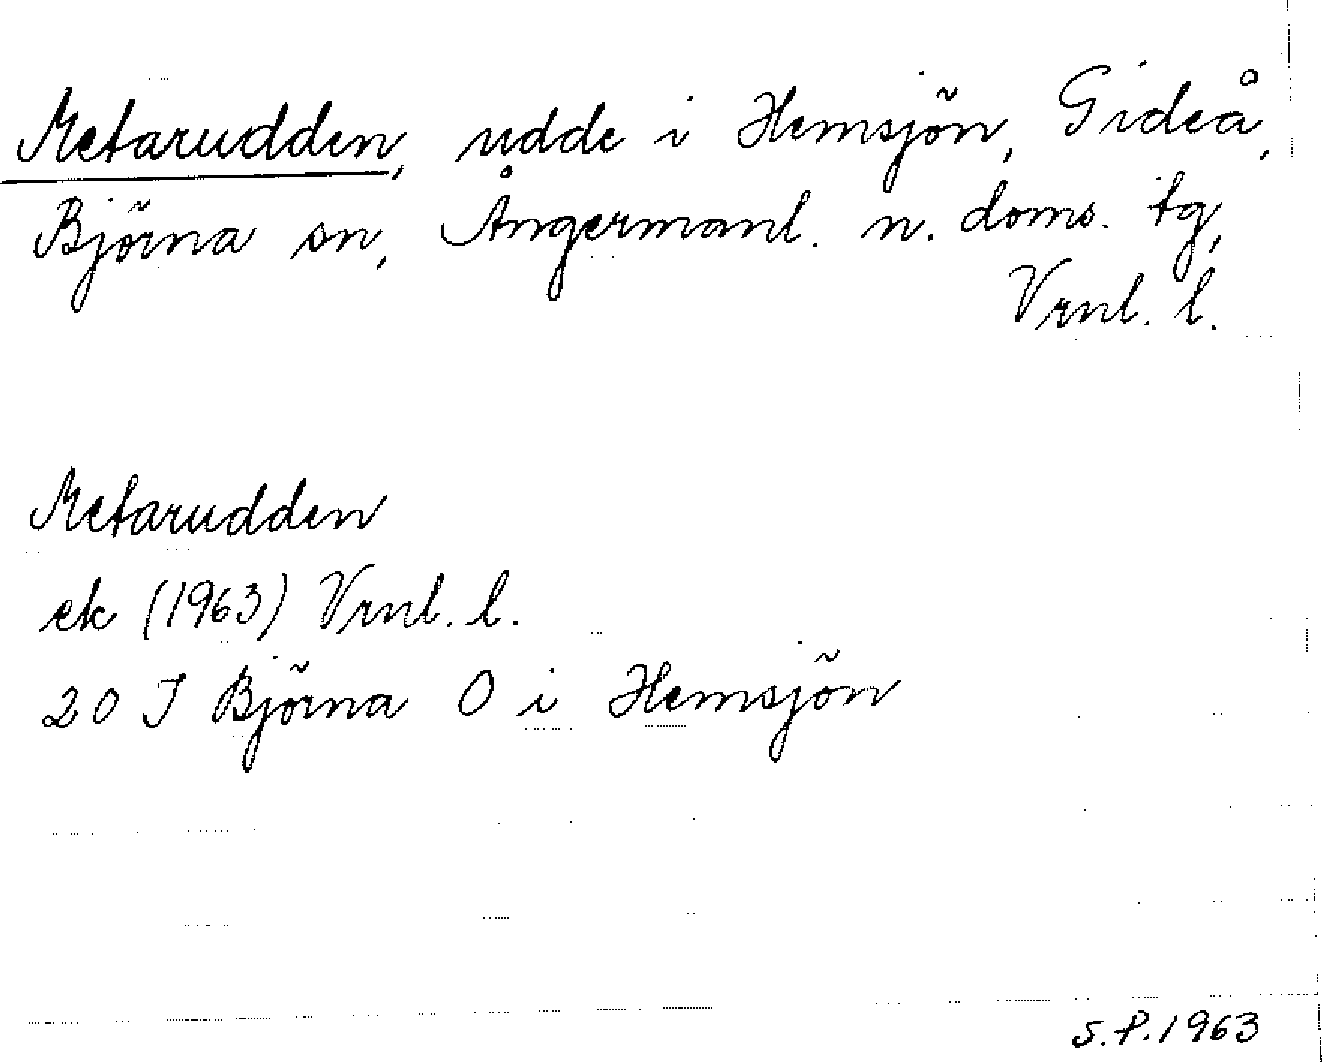 Metarudden, udde i Hemsjön, Gideå,
Björna sn, Ångermanl. n. doms. tg,
Vrnl. l.
Metarudden
ek (1963) Vrnl. l.
20 J Björna O i Hemsjön
S.P. 1963